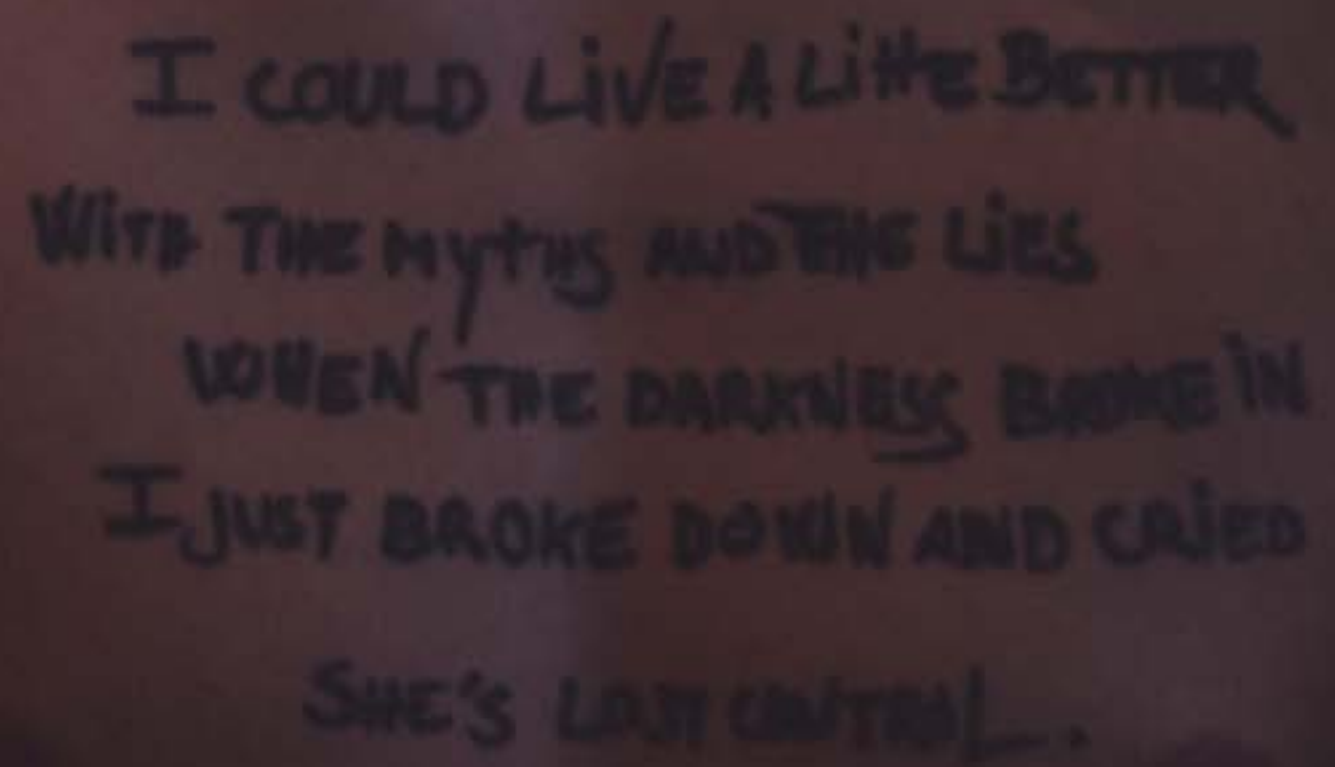 I COULD LiVE A LittlE BETTER
WiTH THE MyTHS AND THE LiES
WHEN THE DARKNESS BROKE iN
I JUST BROKE DOWN AND CRiED
SHE'S LOST CONTROL.